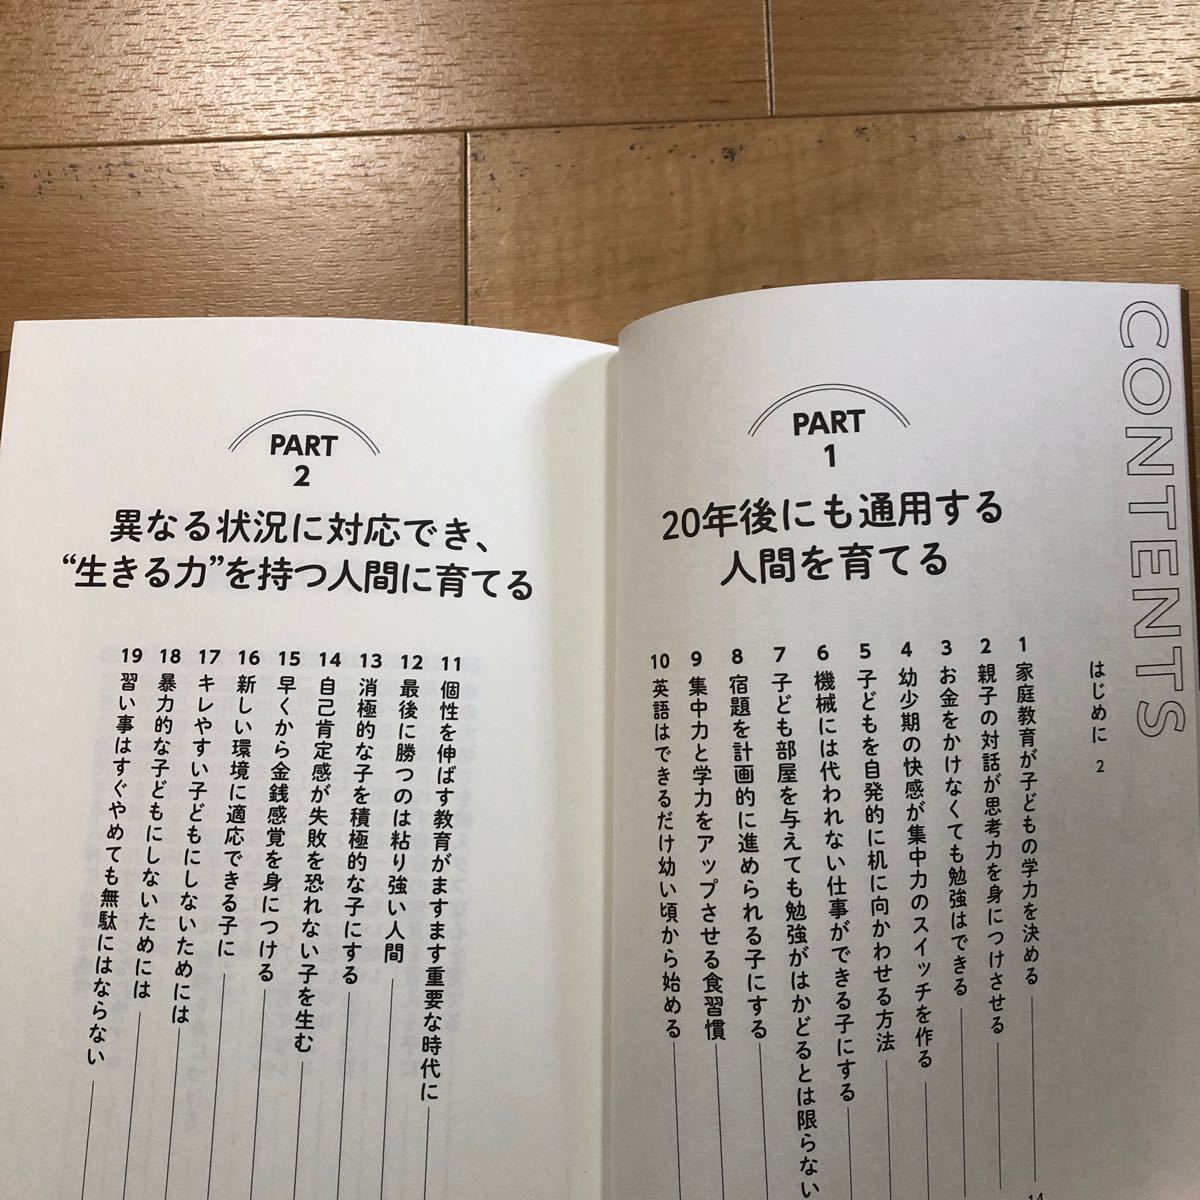 CONTENTS
はじめに 2
PART
1
20年後にも通用する
人間を育てる
1 家庭教育が子どもの学力を決める
14
2 親子の対話が思考力を身につけさせる
3 お金をかけなくても勉強はできる
4 幼少期の快感が集中力のスイッチを作る
5 子どもを自発的に机に向かわせる方法
6 機械には代われない仕事ができる子にする
7 子ども部屋を与えても勉強がはかどるとは限らない
8 宿題を計画的に進められる子にする
9 集中力と学力をアップさせる食習慣
10 英語はできるだけ幼い頃から始める
PART
2
異なる状況に対応でき、
“生きる力”を持つ人間に育てる
11 個性を伸ばす教育がますます重要な時代に
12 最後に勝つのは粘り強い人間
13 消極的な子を積極的な子にする
14 自己肯定感が失敗を恐れない子を生む
15 早くから金銭感覚を身につける
16 新しい環境に適応できる子に
17 キレやすい子どもにしないためには
18 暴力的な子どもにしないためには
19 習い事はすぐやめても無駄にはならない